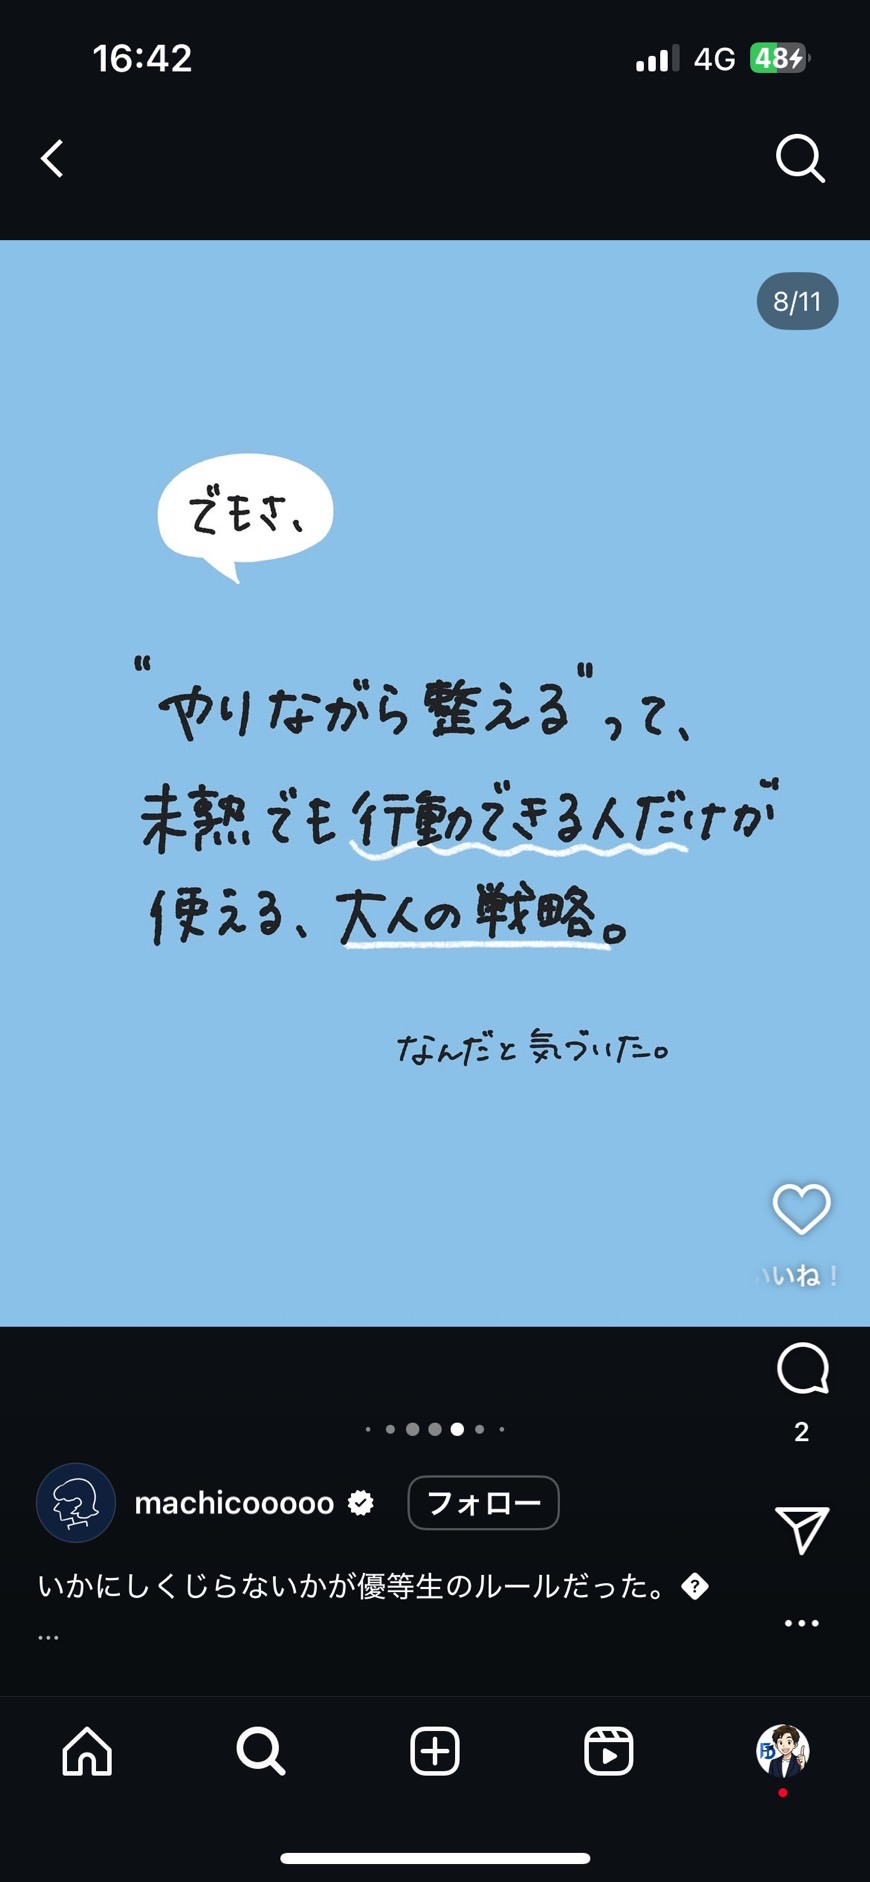 16:42
4G
48
8/11
でもさ、
“やりながら整える”って、
未熟でも行動できる人だけが
使える、大人の戦略。
なんだと気づいた。
いいね!
2
machicooooo
フォロー
いかにしくじらないかが優等生のルールだった。
...